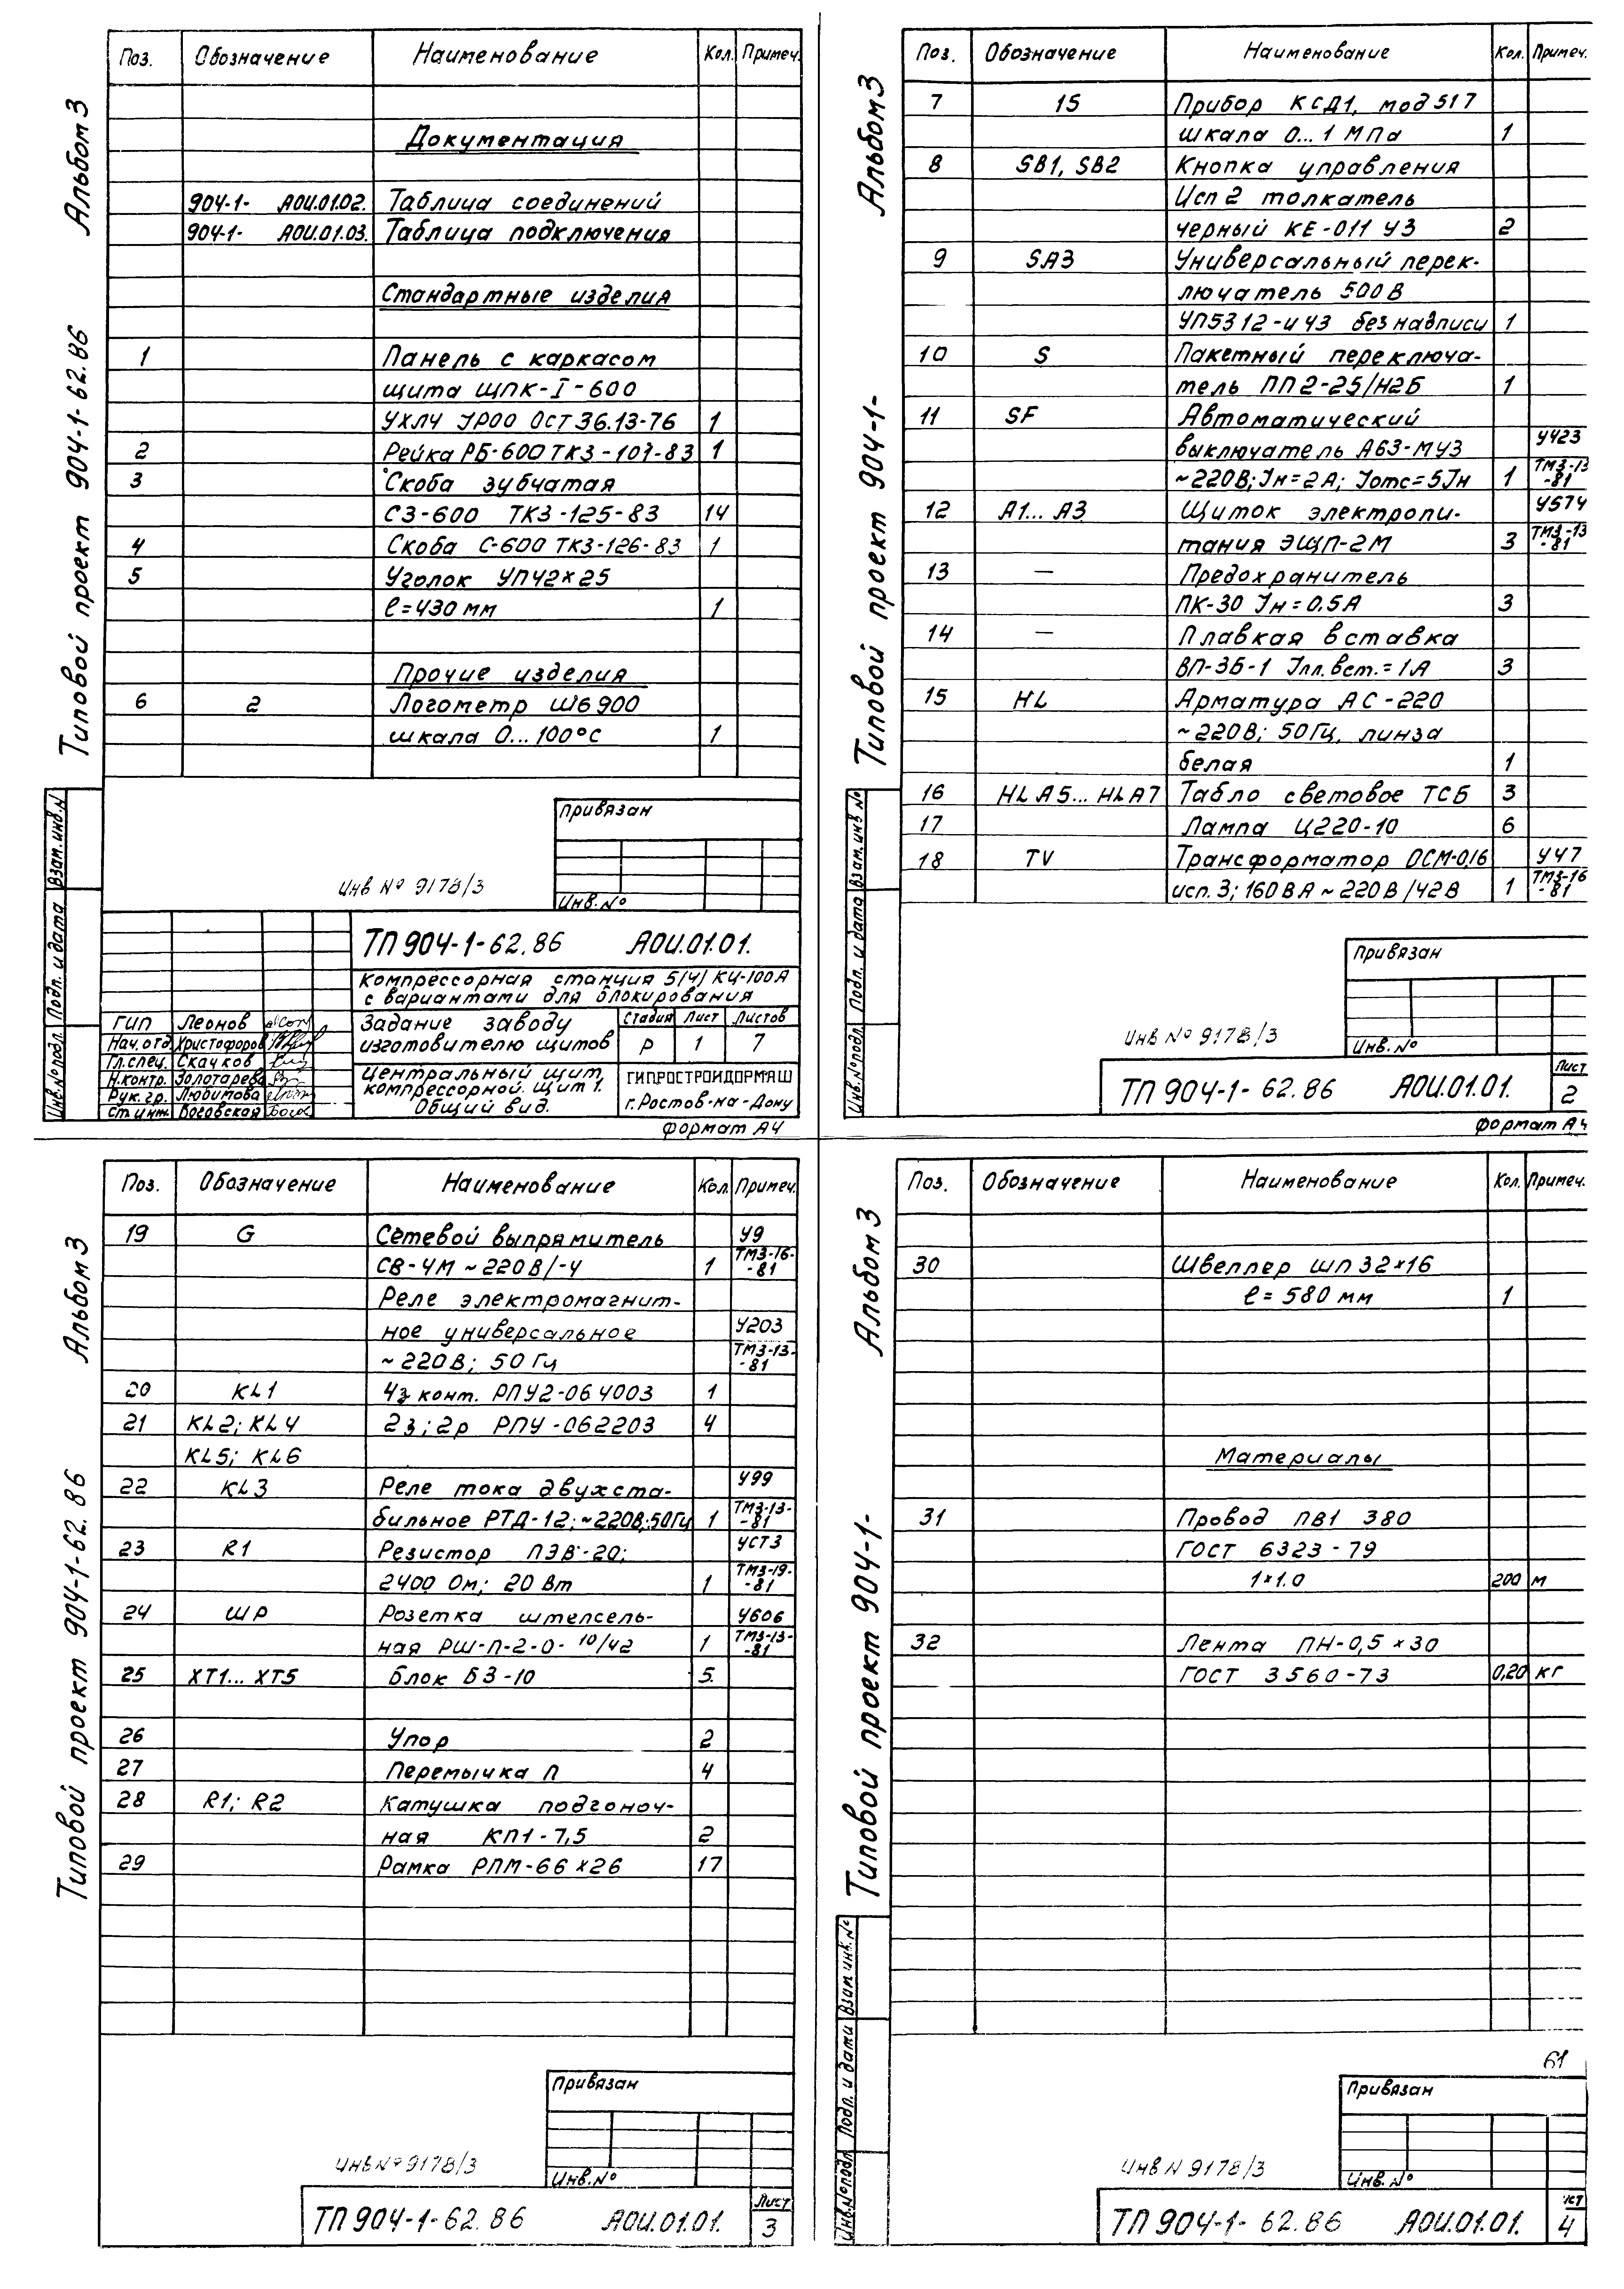 Альбом 3
Типовой проект 904-1-62.86
Поз. Обозначение Наименование Кол. Примеч.
Документация
904-1- АОИ.01.02. Таблица соединений
904-1- АОИ.01.03. Таблица подключения
Стандартные изделия
1 Панель с каркасом
щита ЩПК-I-600
УХЛ4 УР00 ОСТ 36.13-76 1
2 Рейка РБ-600 ТК3-107-83 1
3 Скоба зубчатая
СЗ-600 ТК3-125-83 14
4 Скоба С-600 ТК3-126-83 1
5 Уголок УП42×25
ℓ=430 мм 1
Прочие изделия
6 2 Логометр Ш6900
шкала 0...100°С 1
Привязан
Инв № 9178/3
Инв.№
ТП 904-1-62.86 АОИ.01.01.
Компрессорная станция 5(4) КЦ-100А
с вариантами для блокирования
ГИП Леонов
Нач.отд Христофоров
Гл.спец. Скачков
Н.контр. Золотарева
Рук.гр. Любимова
Ст.инж. Восовская
Задание заводу
изготовителю щитов
Стадия Лист Листов
Р 1 7
Центральный щит
компрессорной. Щит 1.
Общий вид.
ГИПРОСТРОЙДОРМАШ
г.Ростов-на-Дону
Инв.№подл. Подп. и дата Взам.инв.N
формат А4
Альбом 3
Типовой проект 904-1-
Поз. Обозначение Наименование Кол. Примеч.
7 1S Прибор КСД1, мод 517
шкала 0...1 МПа 1
8 SB1, SB2 Кнопка управления
Исп 2 толкатель
черный КЕ-011 У3 2
9 SA3 Универсальный перек-
лючатель 500В
УП5312-И43 без надписи 1
10 S Пакетный переключа-
тель ПП2-25/Н2Б 1
11 SF Автоматический
выключатель А63-МУ3 У423
~220В; Iн=2А; Iотс=5Iн 1 ТМ3-13
-81
12 А1...А3 Щиток электропи- У574
тания ЭЩП-2М 3 ТМ3-13
-81
13 — Предохранитель
ПК-30 Iн=0.5А 3
14 — Плавкая вставка
ВП-3Б-1 Iпл.вст.=1А 3
15 HL Арматура АС-220
~220В; 50Гц, линза
белая 1
16 HLA5...HLA7 Табло световое ТСБ 3
17 Лампа Ц220-10 6
18 TV Трансформатор ОСМ-0,16 У47
исп.3; 160ВА ~220В/42В 1 ТМ3-16
-81
Привязан
Инв № 9178/3
Инв.№
ТП 904-1-62.86 АОИ.01.01.
Лист
2
Инв.№подл. Подп. и дата Взам.инв №
формат А4
Альбом 3
Типовой проект 904-1-62.86
Поз. Обозначение Наименование Кол. Примеч.
19 G Сетевой выпрямитель У9
СВ-4М ~220В/-4 1 ТМ3-16-
-81
Реле электромагнит-
ное универсальное У203
~220В; 50Гц ТМ3-13-
-81
20 KL1 4з конт. РПУ2-064003 1
21 KL2; KL4 2з; 2р РПУ-062203 4
KL5; KL6
22 KL3 Реле тока двухста- У99
бильное РТД-12; ~220В; 50Гц 1 ТМ3-13-
-81
23 R1 Резистор ПЭВ-20; УСТ3
2400 Ом; 20 Вт 1 ТМ3-19-
-81
24 ШР Розетка штепсель- У606
ная РШ-П-2-0-10/42 1 ТМ3-13-
-81
25 ХТ1...ХТ5 Блок БЗ-10 5.
26 Упор 2
27 Перемычка П 4
28 R1; R2 Катушка подгоноч-
ная КП1-7,5 2
29 Рамка РПМ-66×26 17
Привязан
Инв № 9178/3
Инв.№
ТП 904-1-62.86 АОИ.01.01.
Лист
3
Альбом 3
Типовой проект 904-1-
Поз. Обозначение Наименование Кол. Примеч.
30 Швеллер ШП 32×16
ℓ=580 мм 1
Материалы
31 Провод ПВ1 380
ГОСТ 6323-79
1×1.0 200 м
32 Лента ПН-0,5×30
ГОСТ 3560-73 0,20 кг
61
Привязан
Инв N 9178/3
Инв.№
ТП 904-1-62.86 АОИ.01.01.
4
Инв.№подл. Подп. и дата Взам инв.№